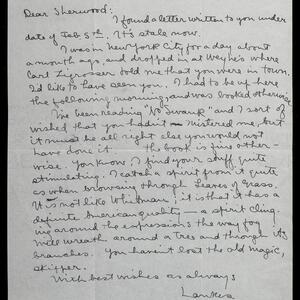 Dear Sherwood:
I found a letter written to you under
date of Feb 5th. It's stale now.
I was in New York City for a day about
a month ago, and dropped in at Weyhe's where
Carl Zigrosser told me that you were in town.
I'd like to have seen you. I had to be up here
the following morning, and was booked otherwise.
I've been reading "No Swank" and I sort of
wished that you hadn't mistered me, but
it must be all right else you would not
have done it — the book is fine other-
wise. You know I find your stuff quite
stimulating. I catch a spirit from it quite
as when browsing through Leaves of Grass.
It is not like Whitman; it is that it has a
definite American quality — a spirit cling-
ing around the expressions the way fog
will wreath around a trees and through its
branches. You haven't lost the old magic,
skipper.
With best wishes as always
Lankes